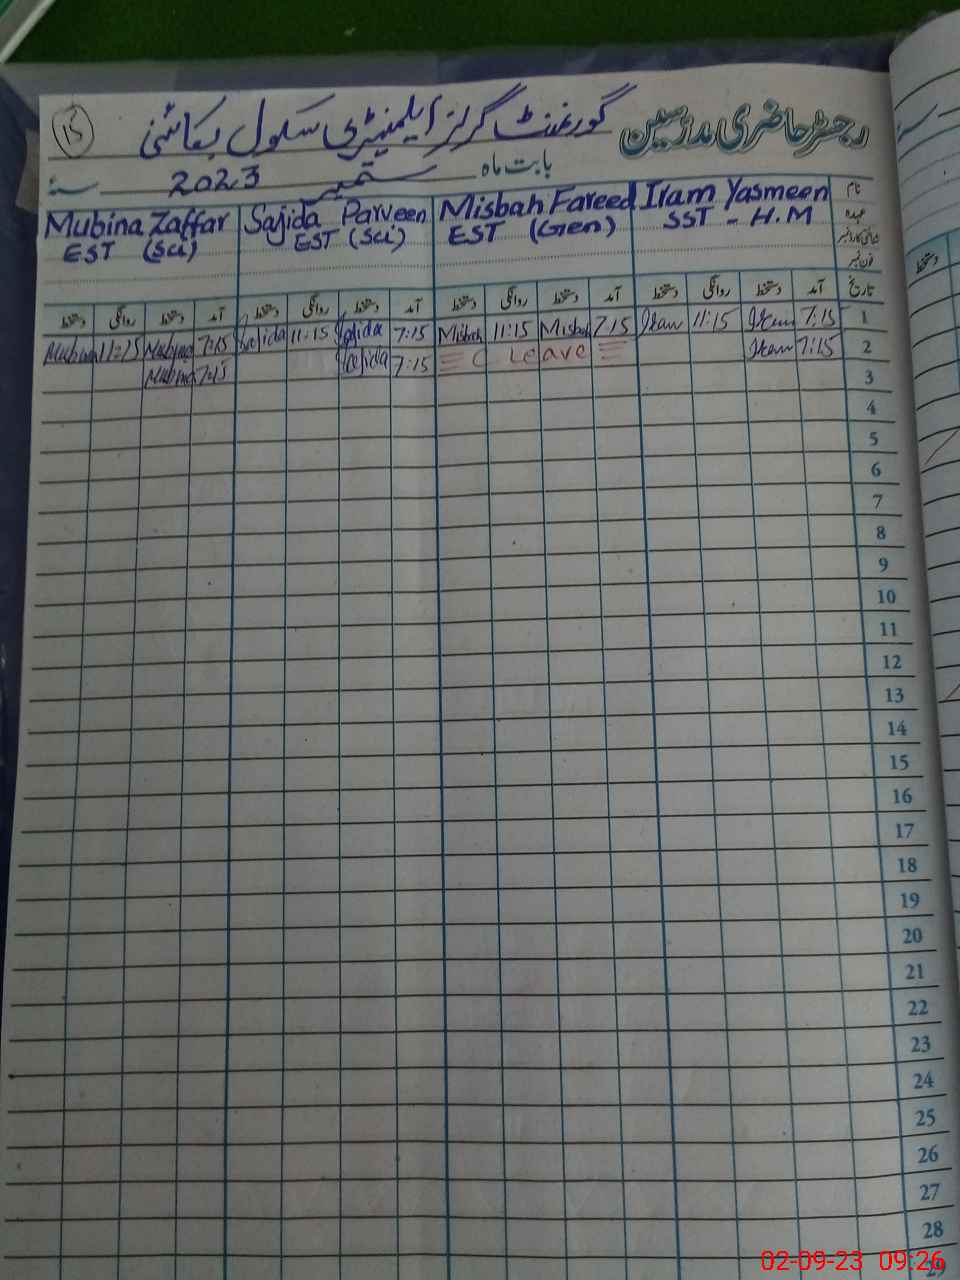 ۱۵
رجسٹر حاضری مدرسین گورنمنٹ گرلز ایلیمنٹری سکول
بابت ماہ ستمبر 2023 سنہ
نام Iram Yasmeen Misbah Fareed Sajida Parveen Mubina Zaffar
عہدہ SST - H.M EST (Gen) EST (Sci) EST (Sci)
شناختی کارڈ نمبر
فون نمبر
تاریخ آمد دستخط روانگی دستخط آمد دستخط روانگی دستخط آمد دستخط روانگی دستخط آمد دستخط روانگی دستخط
1 7:15 Iram 11:15 Iram 7:15 Misbah 11:15 Misbah 7:15 Sajida 11:15 Sajida 7:15 Mubina 11:15 Mubina
2 7:15 Iram Leave 7:15 Sajida 7:15 Mubina
3
4
5
6
7
8
9
10
11
12
13
14
15
16
17
18
19
20
21
22
23
24
25
26
27
28
29
دستخط
02-09-23 09:26